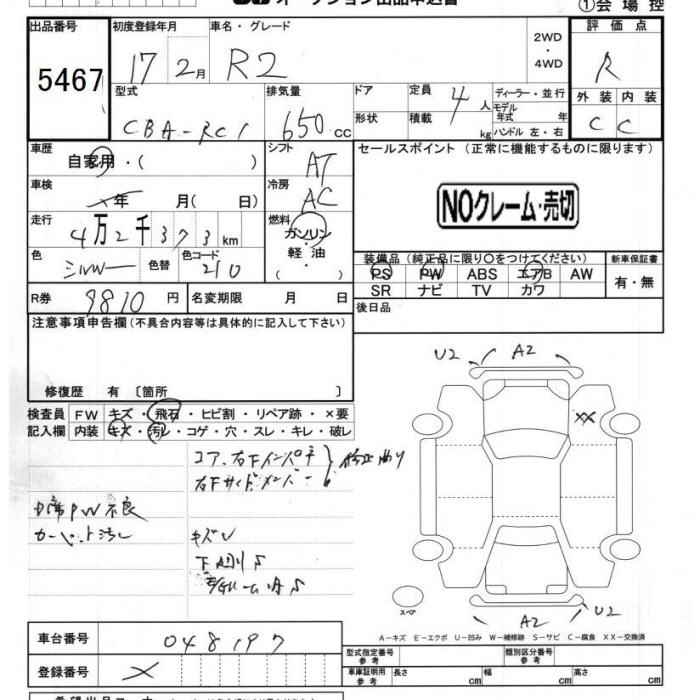 ①会場控
出品番号 初度登録年月 車名・グレード 評価点
5467 17 2月 R2 2WD・4WD R
型式 排気量 ドア 定員 ディーラー・並行 外装 内装
CBA-RC1 650cc 形状 積載 4人 kg モデル年式 年 ハンドル 左・右 C C
車歴 シフト セールスポイント (正常に機能するものに限ります)
自家用・( ) AT
車検 年 月( 日) 冷房 AC NOクレーム・売切
走行 4万2千373km 燃料 ガソリン・軽油・( )
色 シルバー 色替 色コード 210
装備品 (純正品に限り○をつけてください) 新車保証書
PS PW ABS エアB AW 有・無
SR ナビ TV カワ
R券 9810円 名変期限 月 日 後日品
注意事項申告欄 (不具合内容等は具体的に記入して下さい)
修復歴 有 〔箇所 〕
U2 A2
検査員 FW キズ・飛石・ヒビ割・リペア跡・×要
記入欄 内装 キズ・汚レ・コゲ・穴・スレ・キレ・破レ
XX
コア、右下インパネ
右下サイドメンバー
PW不良
カーペット汚レ
キズU
スペア
A2 U2
A-キズ E-エクボ U-凹み W-補修跡 S-サビ C-腐食 XX-交換済
車台番号 048197
型式指定番号 参考 類別区分番号 参考
登録番号 X
車庫証明用 参考 長さ cm 幅 cm 高さ cm